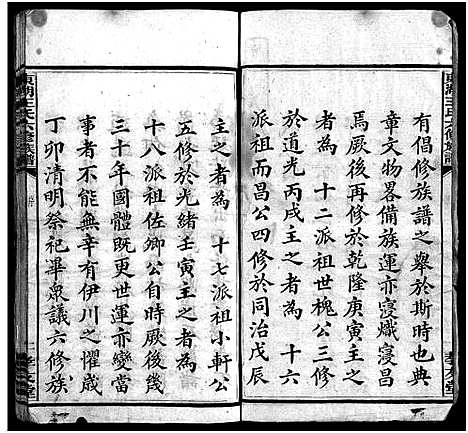 東湖王氏六修族譜
有倡修族譜之舉於斯時也典
章文物畧備族運亦寖熾寖昌
焉厥後再修於乾隆庚寅主之
者為十二派祖世槐公三修
於道光丙戌主之者為十六
派祖而昌公四修於同治戊辰
孝友堂
主之者為十七派祖小軒公
五修於光緒壬寅主之者為
十八派祖佐卿公自時厥後幾
三十年國體既更世運亦變當
事者不能無辛有伊川之懼歲
丁卯清明祭祀畢衆議六修族
東湖王氏六修族譜
二孝友堂